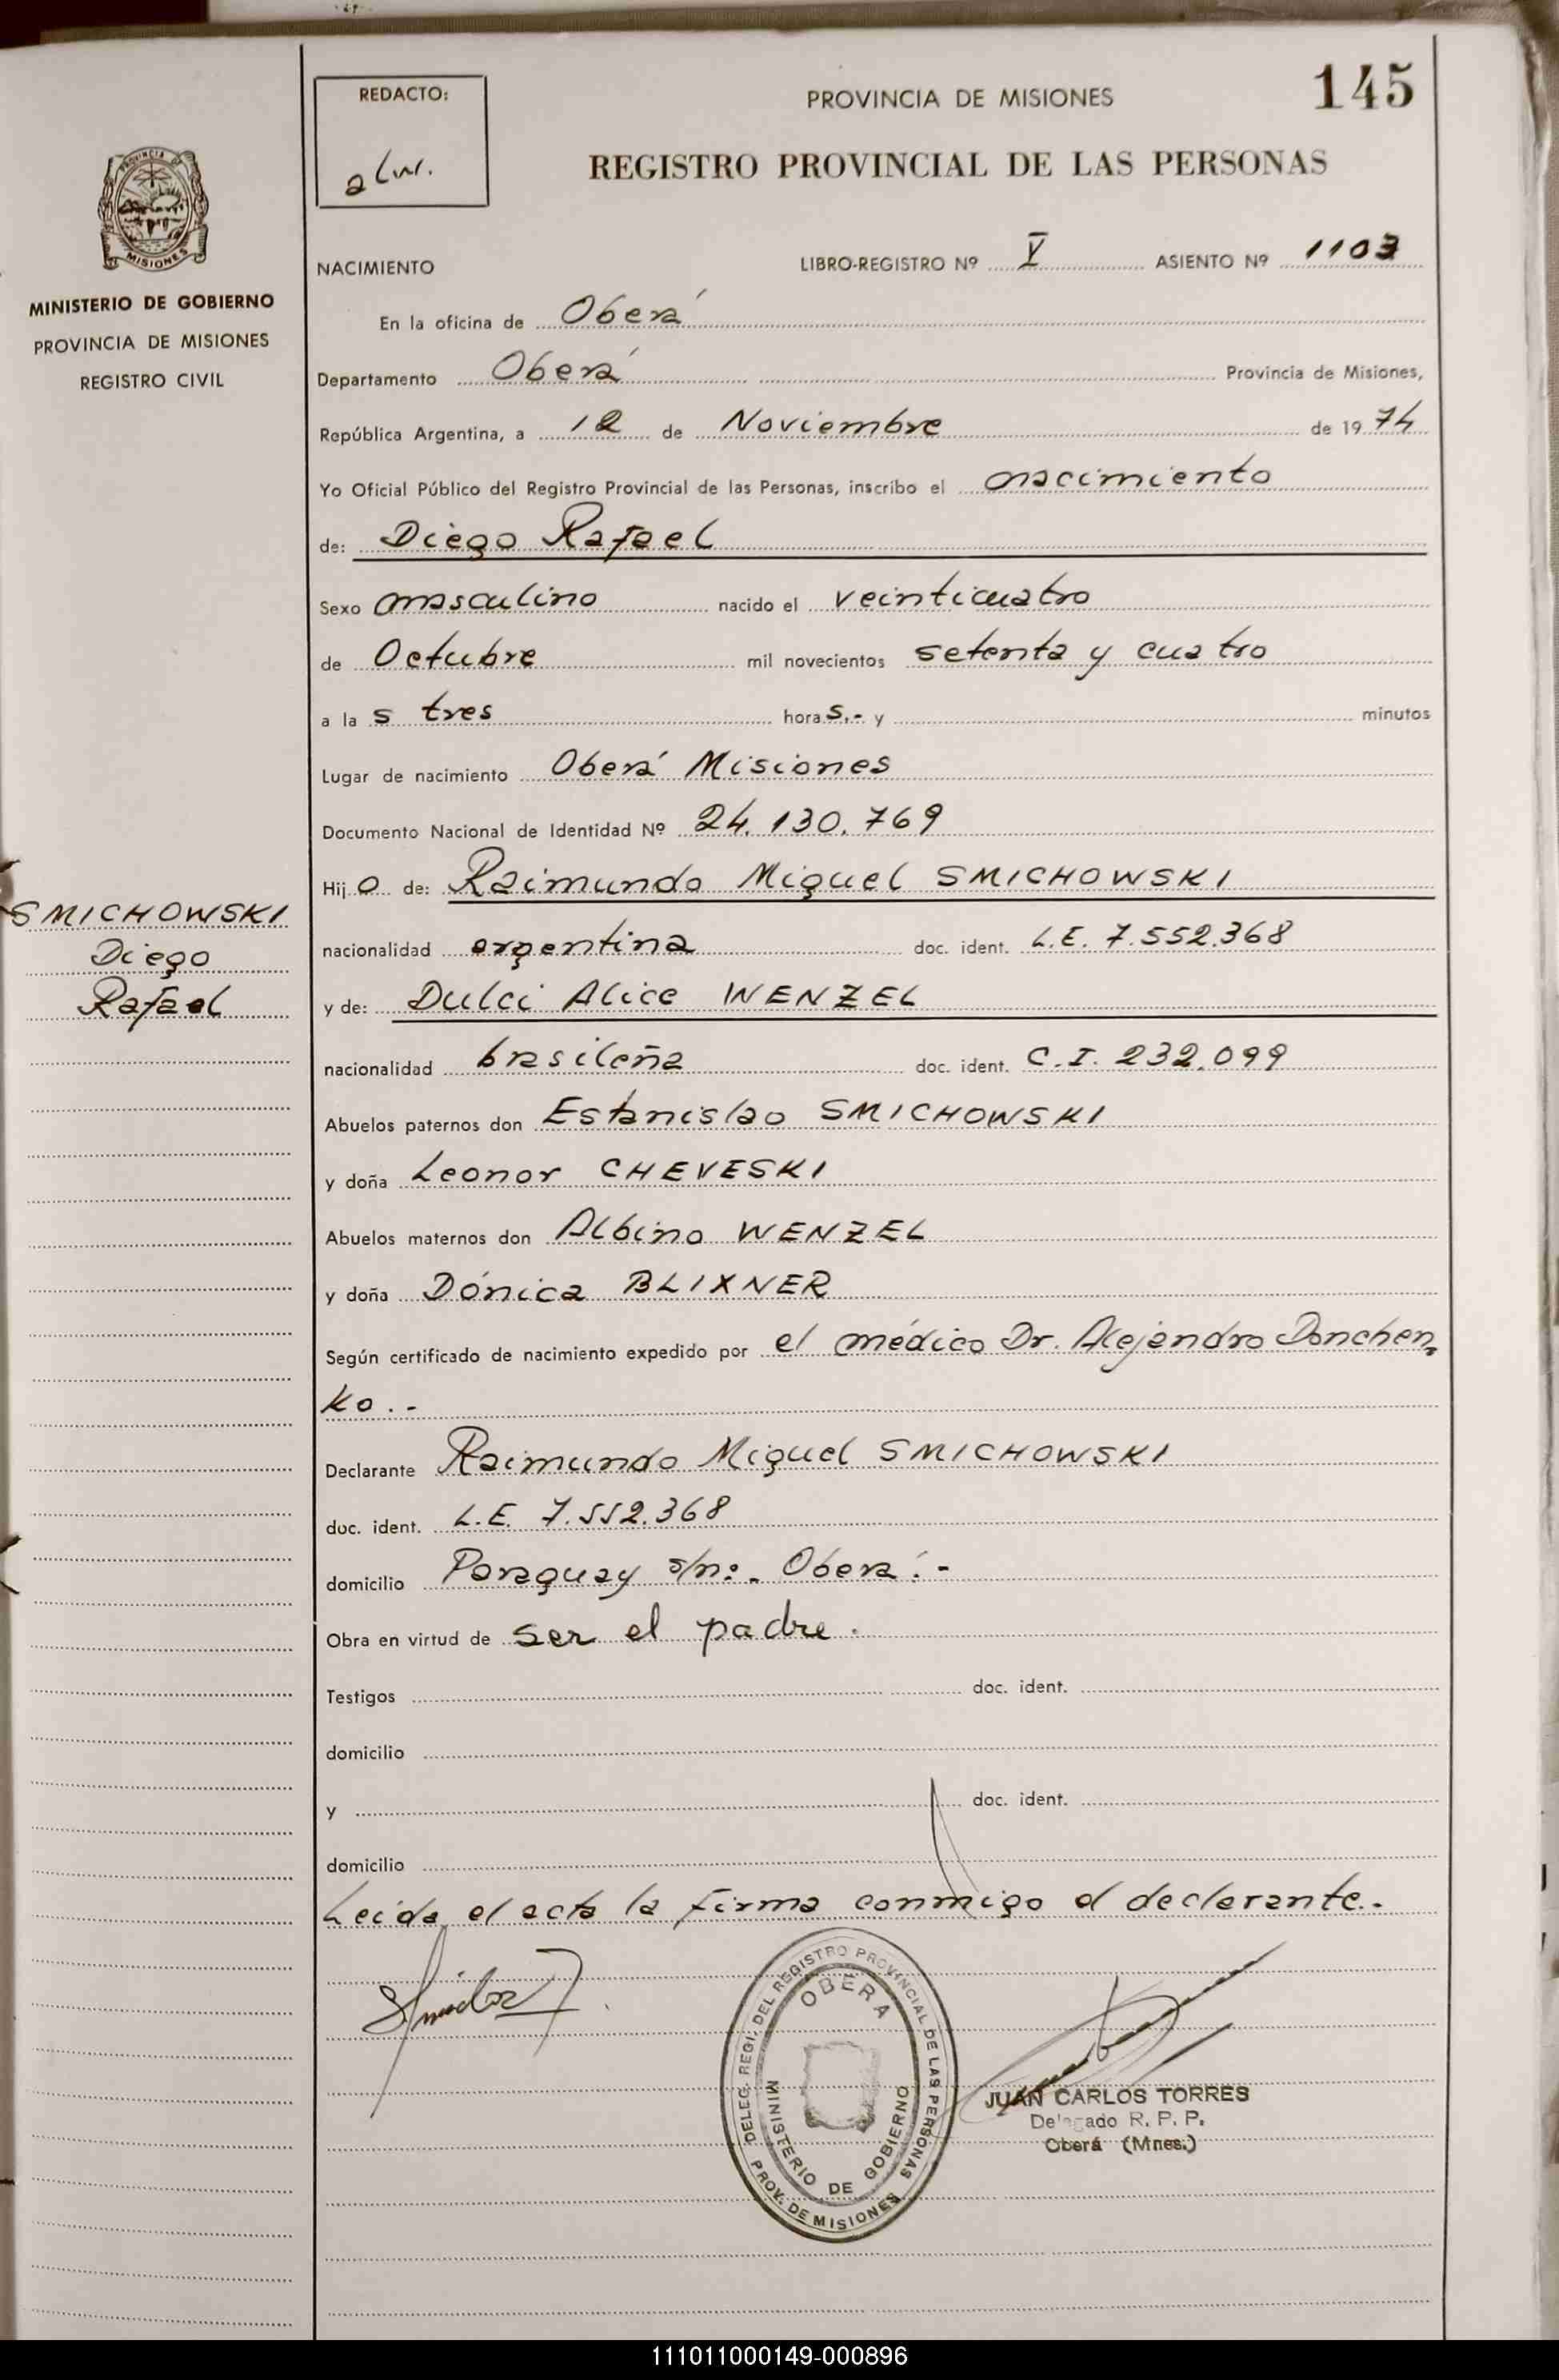 REDACTO:
alw.
PROVINCIA DE MISIONES
145
REGISTRO PROVINCIAL DE LAS PERSONAS
PROVINCIA DE
MISIONES
MINISTERIO DE GOBIERNO
PROVINCIA DE MISIONES
REGISTRO CIVIL
NACIMIENTO LIBRO-REGISTRO Nº V ASIENTO Nº 1103
En la oficina de Oberá
Departamento Oberá Provincia de Misiones,
República Argentina, a 12 de Noviembre de 1974
Yo Oficial Público del Registro Provincial de las Personas, inscribo el nacimiento
de: Diego Rafael
Sexo masculino nacido el veinticuatro
de Octubre mil novecientos setenta y cuatro
a la s tres hora s.- y minutos
Lugar de nacimiento Oberá Misiones
Documento Nacional de Identidad Nº 24.130.769
Hij o de: Raimundo Miguel SMICHOWSKI
SMICHOWSKI
Diego
Rafael
nacionalidad argentina doc. ident. L.E. 7.552.368
y de: Dulci Alice WENZEL
nacionalidad brasileña doc. ident. C.I. 232.099
Abuelos paternos don Estanislao SMICHOWSKI
y doña Leonor CHEVESKI
Abuelos maternos don Albino WENZEL
y doña Dónica BLIXNER
Según certificado de nacimiento expedido por el médico Dr. Alejandro Donchen
ko.-
Declarante Raimundo Miguel SMICHOWSKI
doc. ident. L.E. 7.552.368
domicilio Paraguay s/nº. Oberá.-
Obra en virtud de ser el padre.
Testigos doc. ident.
domicilio
y doc. ident.
domicilio
Leída el acta la firma conmigo el declarante.-
DELEG. REGI. DEL REGISTRO PROVINCIAL DE LAS PERSONAS
OBERA
MINISTERIO DE GOBIERNO
PROV. DE MISIONES
JUAN CARLOS TORRES
Delegado R. P. P.
Oberá (Mnes.)
111011000149-000896